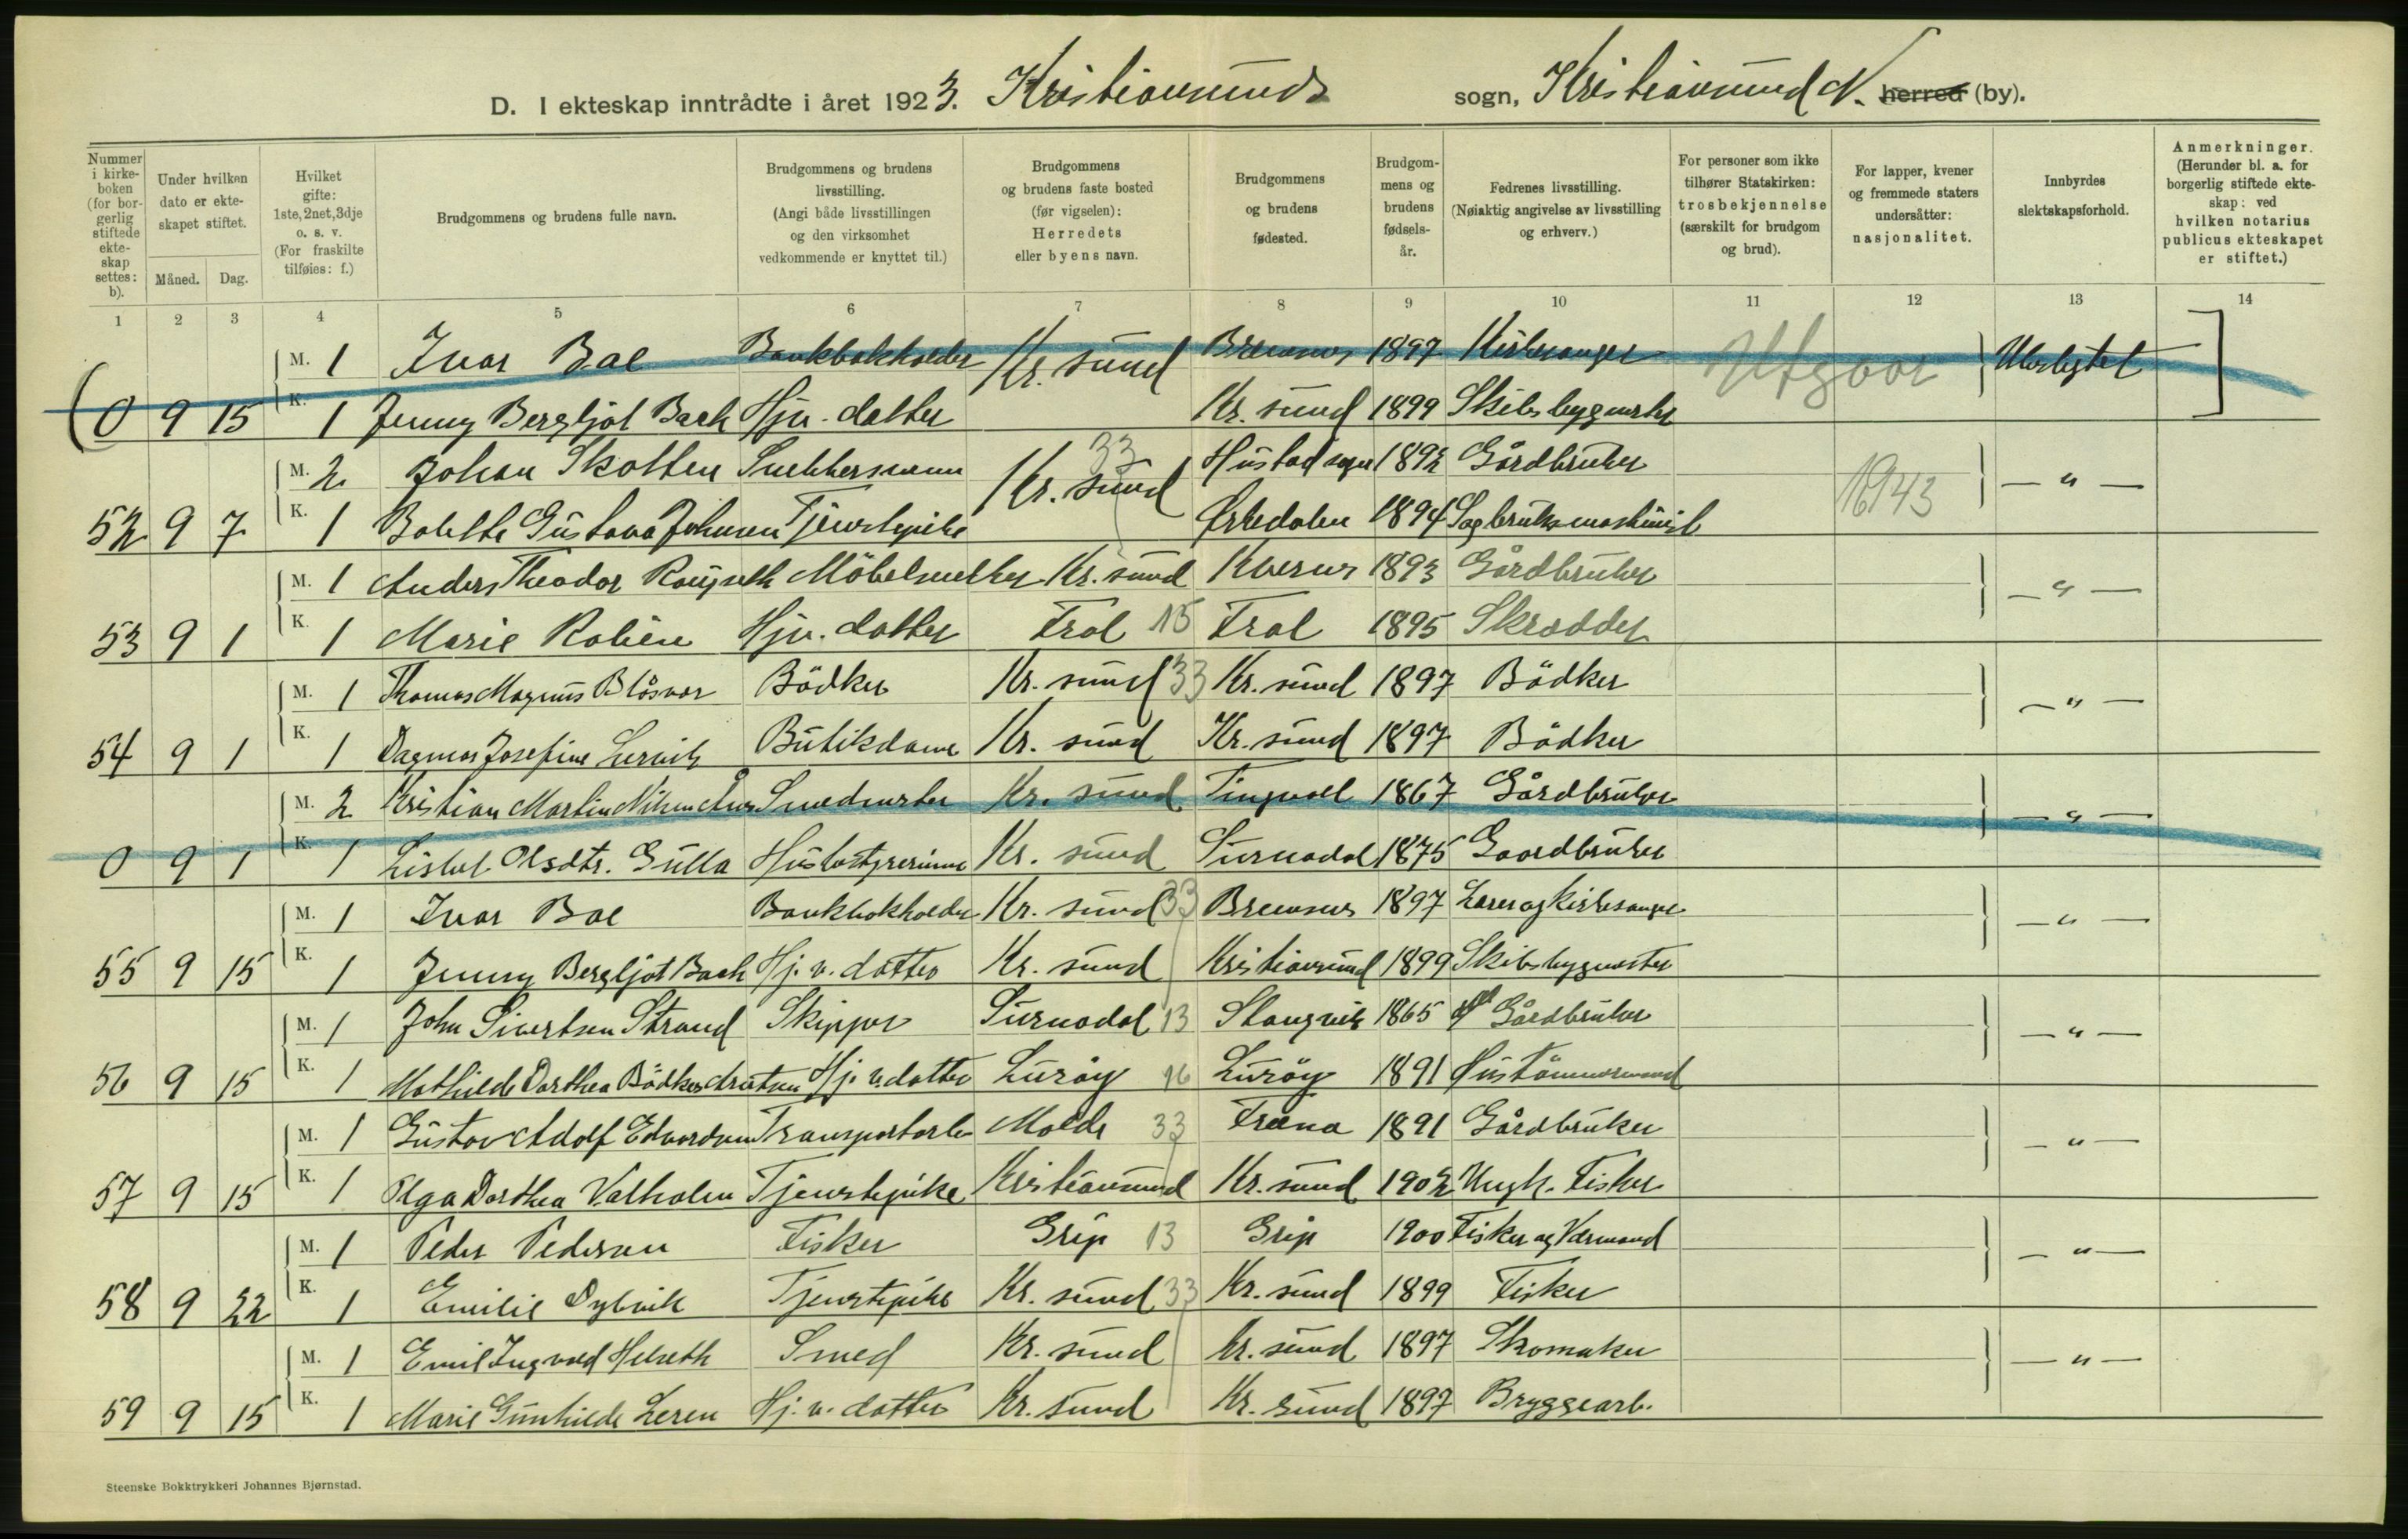 D. I ekteskap inntrådte i året 1923. Kristiansunds sogn, Kristiansund N. herred (by).
Nummer i kirke-boken (for bor-gerlig stiftede ekte-skap settes: b).
Under hvilken dato er ekte-skapet stiftet.
Måned. Dag.
Hvilket gifte: 1ste, 2net, 3dje o. s. v. (For fraskilte tilføies: f.)
Brudgommens og brudens fulle navn.
Brudgommens og brudens livsstilling. (Angi både livsstillingen og den virksomhet vedkommende er knyttet til.)
Brudgommens og brudens faste bosted (før vigselen): Herredets eller byens navn.
Brudgommens og brudens fødested.
Brudgom-mens og brudens fødsels-år.
Fedrenes livsstilling. (Nøiaktig angivelse av livsstilling og erhverv.)
For personer som ikke tilhører Statskirken: trosbekjennelse (særskilt for brudgom og brud).
For lapper, kvener og fremmede staters undersåtter: nasjonalitet.
Innbyrdes slektskapsforhold.
Anmerkninger. (Herunder bl. a. for borgerlig stiftede ekte-skap: ved hvilken notarius publicus ekteskapet er stiftet.)
1 2 3 4 5 6 7 8 9 10 11 12 13 14
M. 1 Ivar Bae Bankbokholder Kr. sund Bremsnes 1897 Kirkesanger Utgaar Ubeslegtet
0 9 15 K. 1 Jenny Bergljot Back Hjv. datter Kr. sund 1899 Skibsbygmester
M. 2 Johan Skotten Snekkermann Kr. sund 33 Hustad sogn 1892 Gårdbruker 16943 — " —
52 9 7 K. 1 Bolette Gustava Johnsen Tjenstepike Ørkedalen 1894 Sagbruksmaskinist
M. 1 Anders Theodor Røigseth Möbelsnekker Kr. sund Kvernes 1893 Gårdbruker — " —
53 9 1 K. 1 Marie Rolien Hjv. datter Frol 15 Frol 1895 Skrædder
M. 1 Thomas Magnus Blåsvær Bödker Kr. sund 33 Kr. sund 1897 Bödker — " —
54 9 1 K. 1 Dagmar Josefine Lervik Butikdame Kr. sund Kr. sund 1897 Bödker
M. 2 Kristian Martin Smedmester Kr. sund Tingvoll 1867 Gårdbruker — " —
0 9 1 K. 1 Lisbet Olsdtr. Gulla Husbestyrerinne Kr. sund Surnadal 1875 Gaardbruker
M. 1 Ivar Bae Bankbokholder Kr. sund 33 Bremsnes 1897 Lærer og kirkesanger — " —
55 9 15 K. 1 Jenny Bergljot Back Hj. v. datter Kr. sund Kristiansund 1899 Skibsbygmester
M. 1 John Sivertsen Strand Skipper Surnadal 13 Stangvik 1865 Gårdbruker — " —
56 9 15 K. 1 Mathilde Dorthea Bödker Arntsen Hj. v. datter Luröy 16 Luröy 1891 Hustömmermand
M. 1 Gustav Adolf Edvardsen Transportarb. Molde 33 Fræna 1891 Gårdbruker — " —
57 9 15 K. 1 Olga Dorthea Valholm Tjenstepike Kristiansund Kr. sund 1902 Ungk. Fisker
M. 1 Peder Pedersen Fisker Grip 13 Grip 1900 Fisker og Værmand — " —
58 9 22 K. 1 Emilie Dybvik Tjenstepike Kr. sund 33 Kr. sund 1899 Fisker
M. 1 Emil Ingvald Helseth Smed Kr. sund Kr. sund 1897 Skomaker — " —
59 9 15 K. 1 Marie Gunhilde Leren Hj. v. datter Kr. sund Kr. sund 1897 Bryggearb.
Steenske Bokktrykkeri Johannes Bjørnstad.